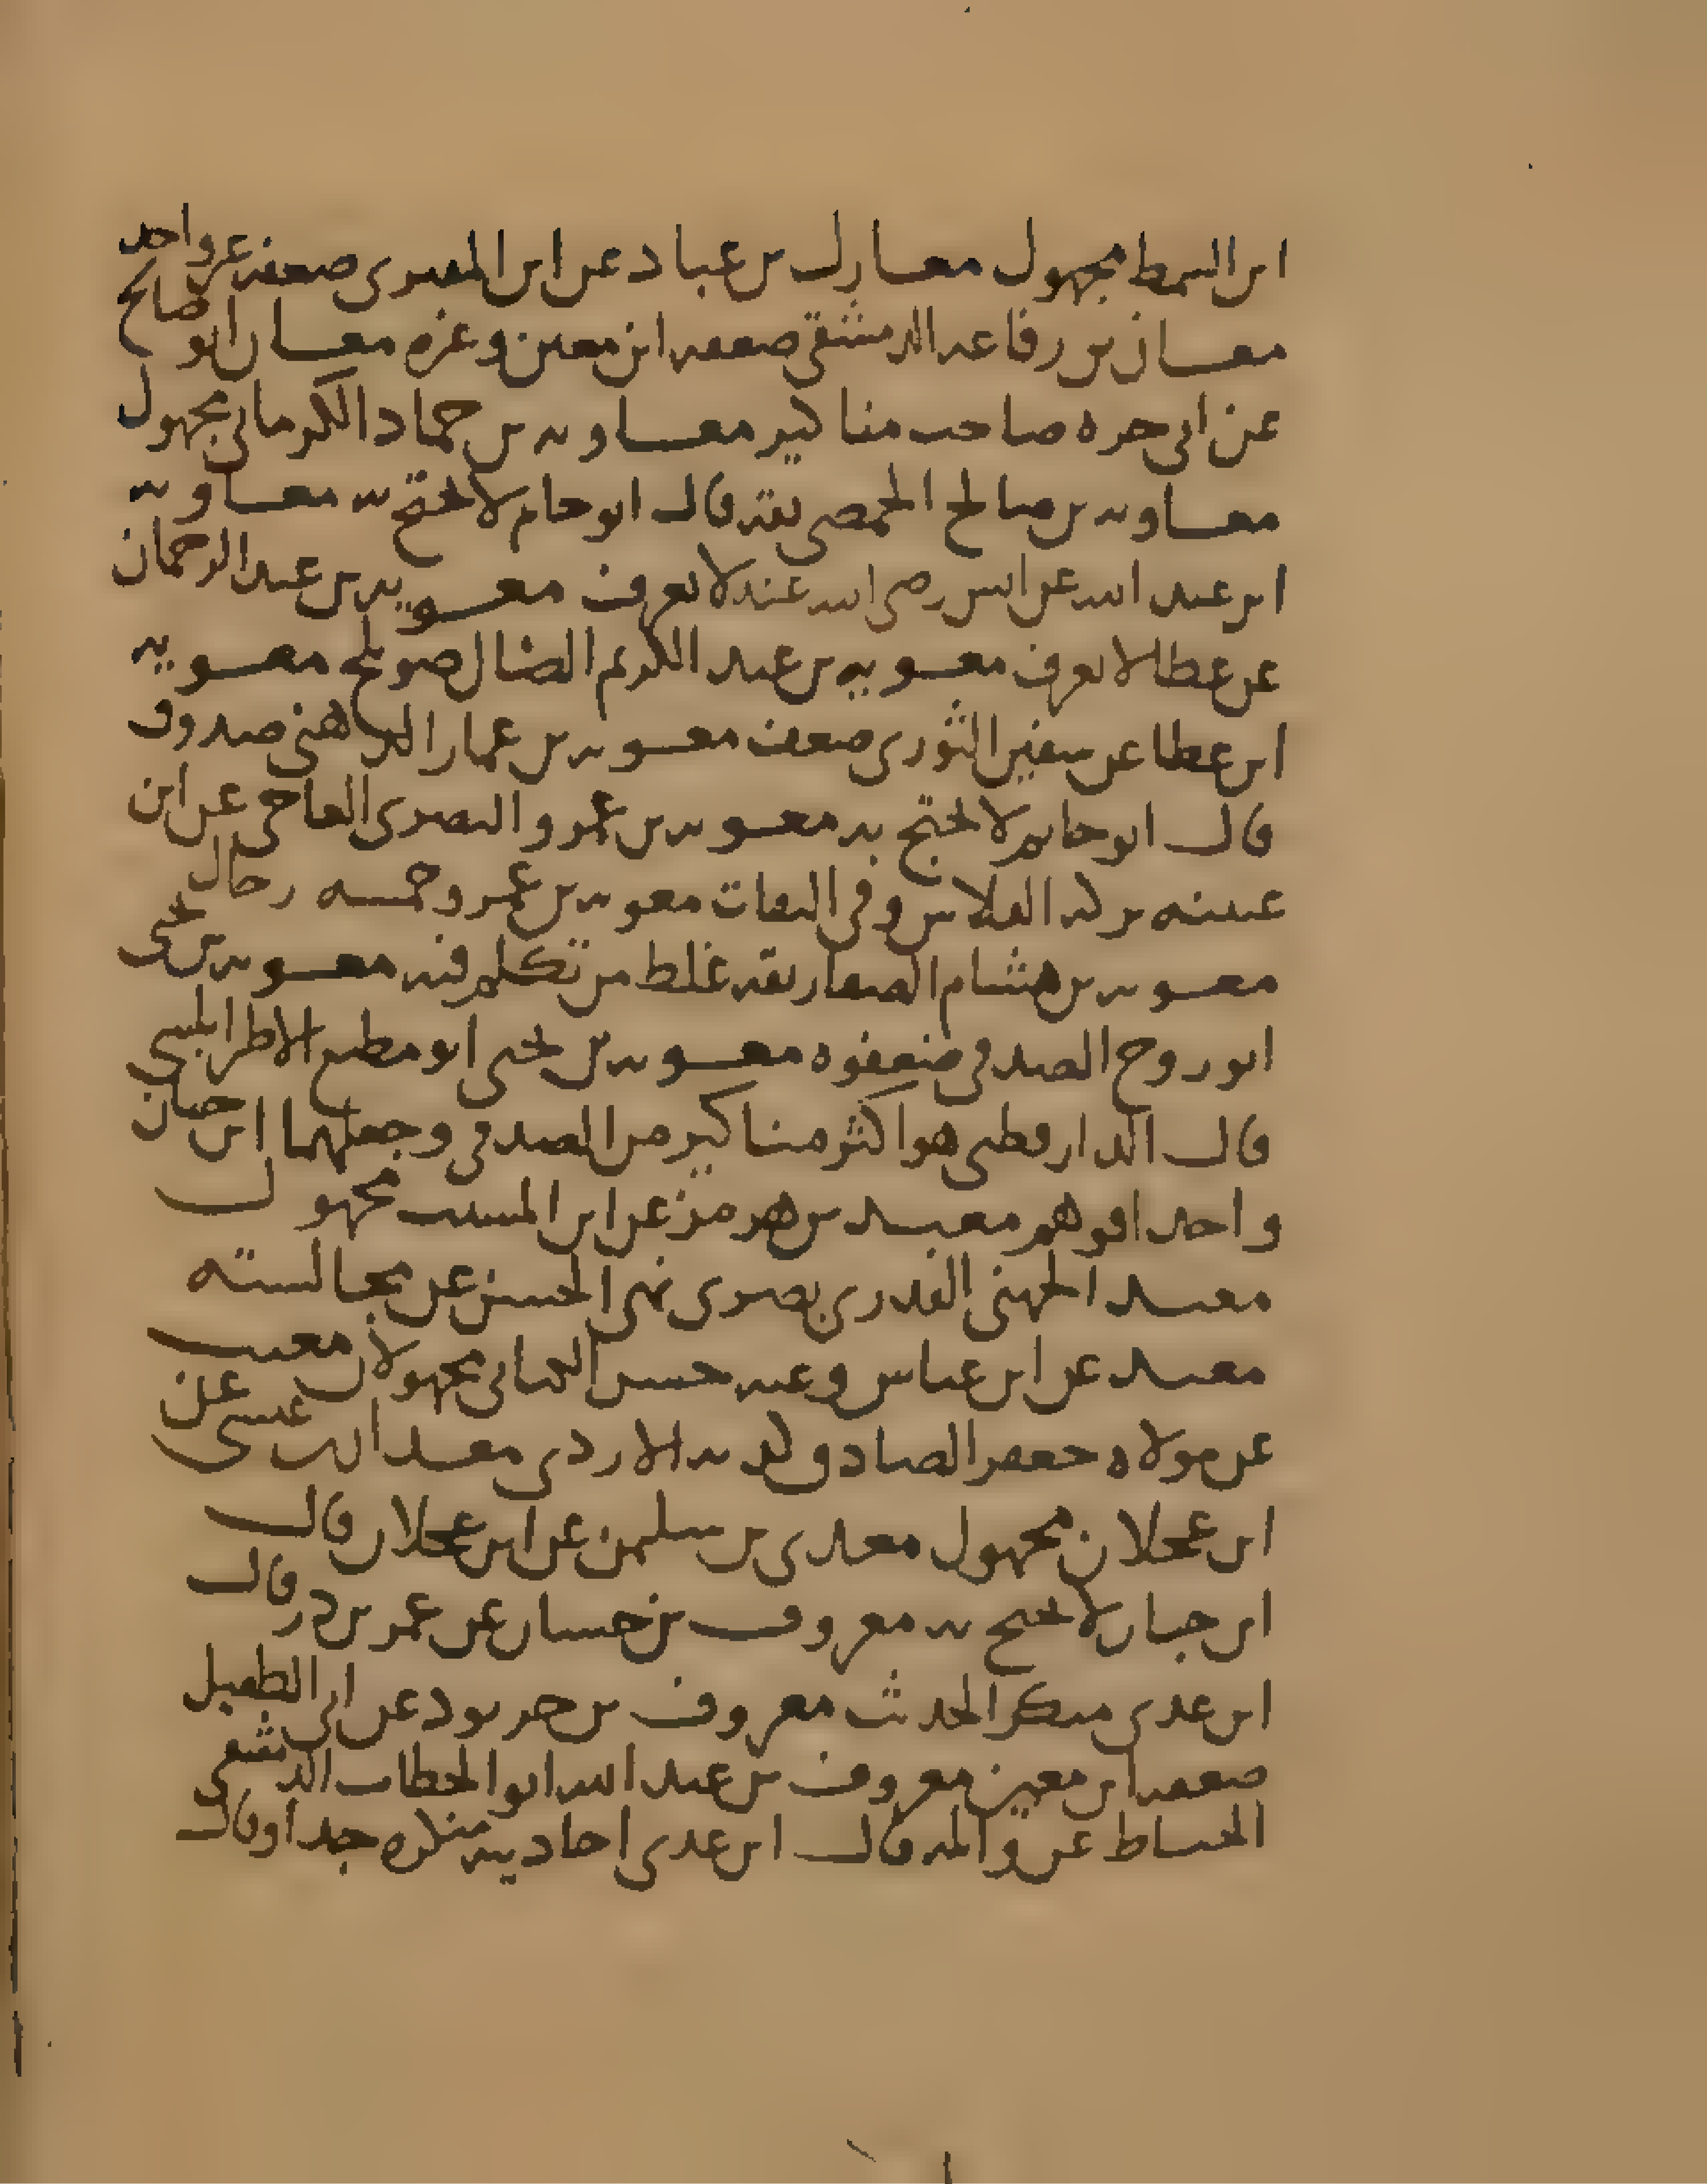 ابن السمط مجهول معارك بن عباد عن ابن المقبرى ضعفه غير واحد
معان بن رفاعه الدمشقى ضعفه ابن معين وغيره معان ابو صالح
عن ابى حره صاحب مناكير معاويه بن حماد الكرمانى مجهول
معاويه بن صالح الحمصى ثقه قال ابو حاتم لا يحتج به معاويه
ابن عبد الله عن انس رضى الله عنه لا يعرف معويه بن عبد الرحمان
عن عطا لا يعرف معويه بن عبد الكريم الضال صويلح معويه
ابن عطا عن سفين الثورى ضعف معويه بن عمار الدهنى صدوق
قال ابو حاتم لا يحتج به معويه بن عمرو البصرى العاجى عن ابن
عيينه تركه الفلاس وفى الثقات معويه بن عمرو خمسه رجال
معويه بن هشام القصار ثقه غلط من تكلم فيه معويه بن يحيى
ابو روح الصدفى ضعفوه معويه بن يحيى ابو مطيع الاطرابلسى
قال الدارقطنى هو اكثر مناكير من الصدفى وجعلهما ابن حبان
واحدا فوهم معبد بن هرمز عن ابن المسيب مجهول
معبد الجهنى القدرى بصرى نهى الحسن عن مجالسته
معبد عن ابن عباس وعنه حسن الكنانى مجهولان معتب
عن مولاه جعفر الصادق كذبه الازدى معد ابن عيسى عن
ابن عجلان مجهول معدى بن سليمن عن ابن عجلان قال
ابن حبان لا يحتج به معروف بن حسان عن عمر بن ذر قال
ابن عدى منكر الحديث معروف بن خربوذ عن ابى الطفيل
ضعفه ابن معين معروف بن عبد الله ابو الخطاب الدمشقى
الخياط عن واثله قال ابن عدى احاديثه منكره جدا وقال